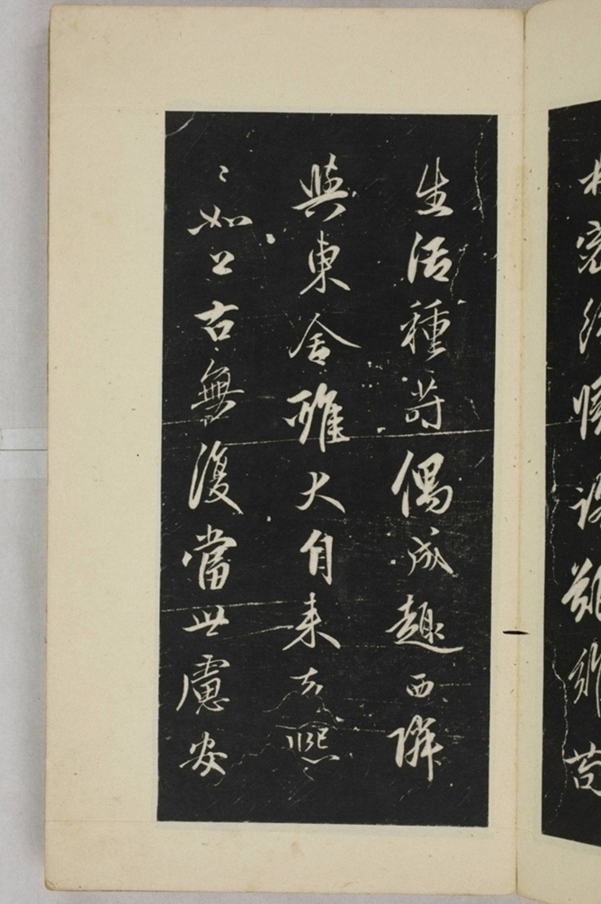 生活種蒔偶成趣西隣
與東舍雞犬自来去熙
〻如上古無復當世慮安